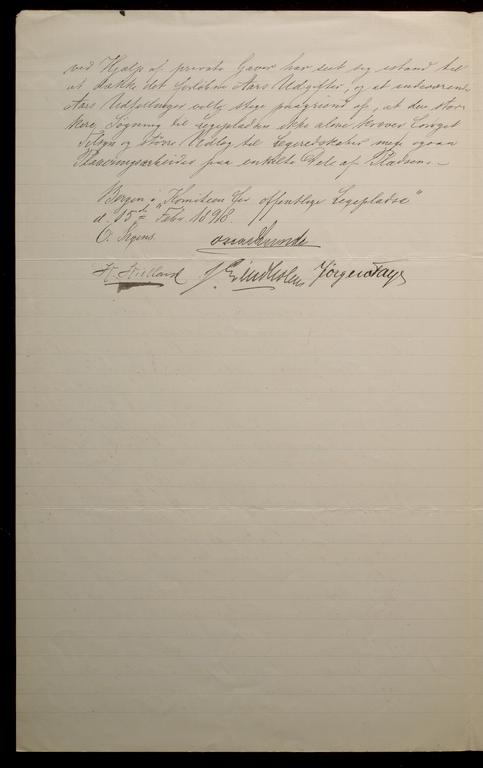 ved Hjælp af private Gaver har set sig istand til
at dække det forløbne Aars Udgifter, og at indeværende
Aars Udtællinger ville stige paagrund af, at den stær-
kere Søgning til Legepladsen ikke alene kræver Længet
Tilsyn og større Udlæg til Legeredskaber men ogsaa
Planeringsarbeider paa enkelte Dele af Pladsen.—
Bergen i "Komiteen for offentlige Legepladse"
d. 15de Febr. 1898.
C. Irgens.
J. Lindholm Jørgen Faye